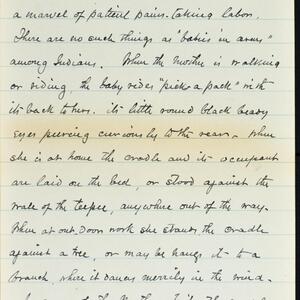 a marvel of patient pains-taking labor.
There are no such things as "babies in arms"
among Indians. When the mother is walking
or riding, the baby rides "pick a pack" with
its back to hers, its little round black beady
eyes peering curiously to the rear. When
she is at home the cradle and its occupant
are laid on the bed, or stood against the
wall of the teepee, anywhere out of the way.
When at out-door work she stands the cradle
against a tree, or may be hangs it to a
branch, where it dances merrily in the wind.